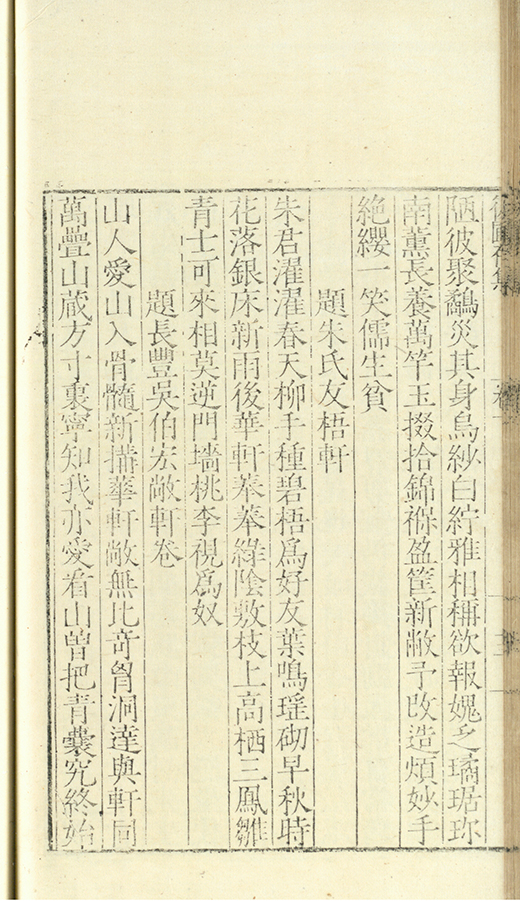 陋彼聚鷸災其身烏紗白紵雅相稱欲報媿乏璚琚珎
南薰長養萬竿玉掇拾錦褓盈筐新敝予改造煩妙手
絶纓一笑儒生貧
題朱氏友梧軒
朱君濯濯春天柳手種碧梧爲好友葉鳴瑶砌早秋時
花落銀床新雨後華軒菶菶綠陰敷枝上高栖三鳳雛
青士可來相莫逆門墻桃李視爲奴
題長豐吳伯宏敞軒卷
山人愛山入骨髓新搆華軒敞無比竒胷洞達與軒同
萬疊山藏方寸裏寧知我亦愛看山曽把青囊究終始